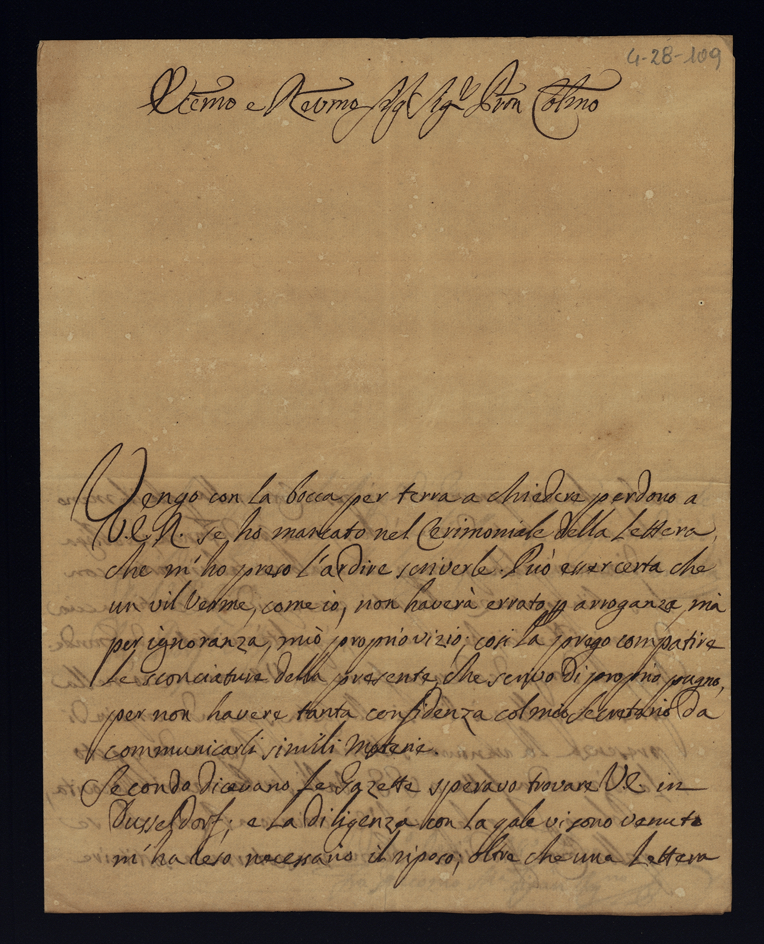 4-28-109
Emo e Revmo Sigr Sigr Pron Colmo
Vengo con la bocca per terra a chiedere perdono a
V.E.R. se ho mancato nel Cerimoniale della Lettera,
che m'ho preso l'ardire scriverle. Può esser certa che
un vil verme, come io, non haverà errato p arroganza mà
per ignoranza, mio proprio vizio; così La prego compatire
Le sconciature della presente, che scrivo di proprio pugno,
per non havere tanta confidenza col mio secretario da
communicarli simili materie.
Secondo dicevano Le Gazette speravo trovare VE. in
Dusseldorf; e La diligenza con la qale vi sono venuto
m'ha reso necessario il riposo; oltre che una Lettera